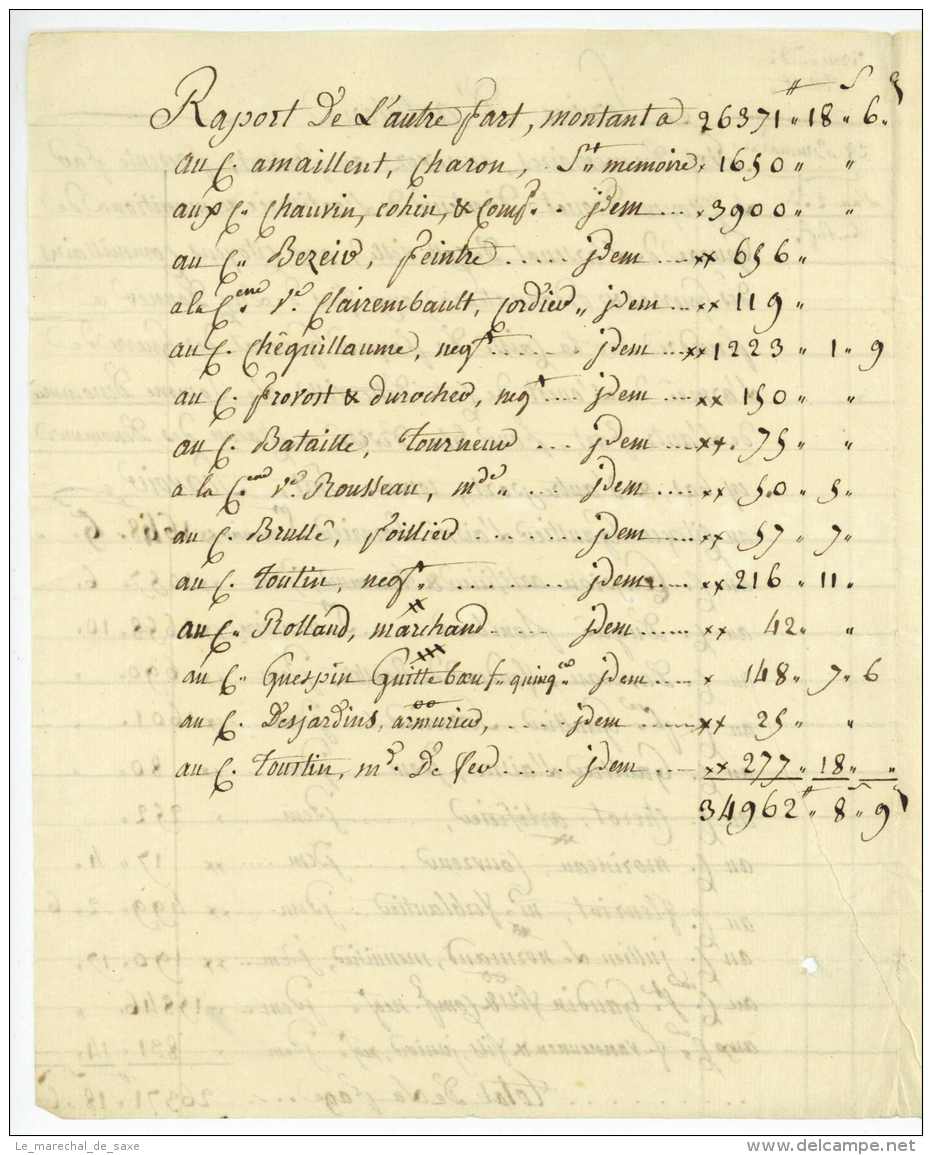 ₶ S ₰
Raport De L'autre part, montant a 26371 " 18 " 6 "
au C. amaillent, charon, St. memoire, 1650 " "
aux C. Chauvin, cohin, & Comp. . jdem .... x 3900 " "
au C. Bezeir, peintre ..... jdem .... xx 656 "
a la C.enne Ve. Clairembault, cordier " jdem ... xx 119 "
au C. Chéquillaume, negt. ......... jdem .... xx 1223 " 1 " 9
au C. provost & durocher, negt .... jdem .... xx 150 " "
au C. Bataille, tourneur ... jdem .... xx. 75 " "
a la C.enne Ve. Rousseau, mde. " .... jdem .... xx 50 " 5 "
au C. Brullé, poillier ........ jdem .... xx 57 " 7 "
au C. toutin, negt. ......... jdem .... xx 216 " 11 "
au C. Rolland, marchand ..... jdem ...... xx 42 " "
au C. Guespin Guittebœuf " quinq. jdem ..... x 148 " 7 " 6
au C. Desjardins, armurier, ..... jdem ...... xx 25 " "
au C. toustin, md. De fer ..... jdem .... xx 277 " 18 " "
34962 ₶ 8 " 9
Le_marechal_de_saxe
www.delcampe.net